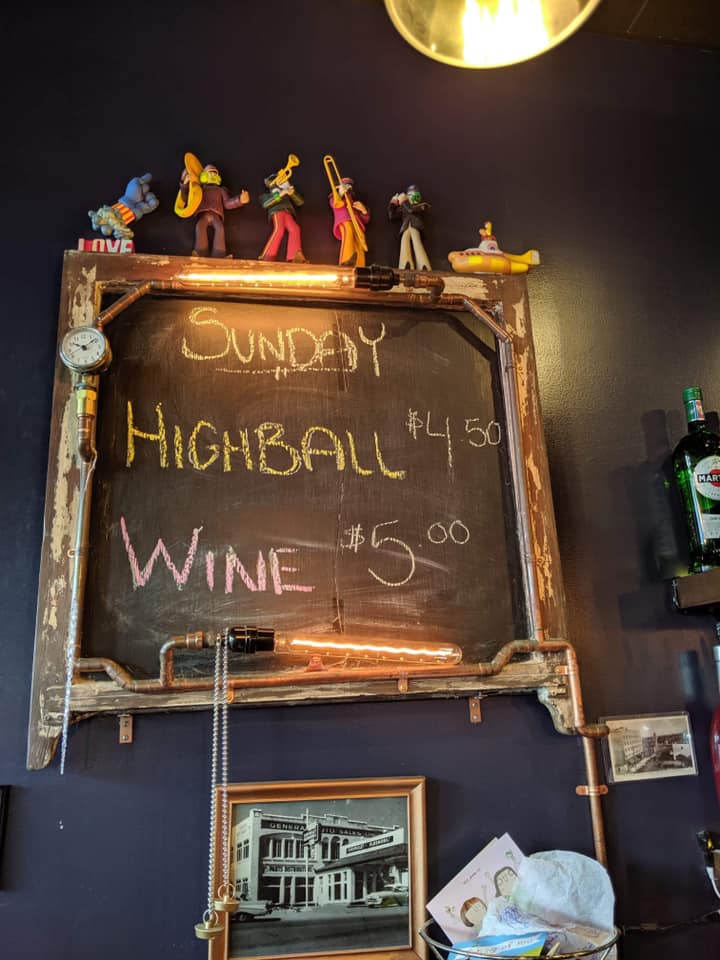 LOVE
SUNDAY
HIGHBALL $4.50
WINE $5.00
MART